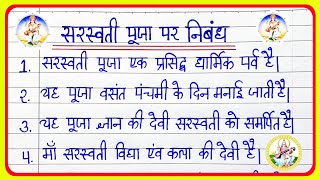 सरस्वती पूजा पर निबंध
1. सरस्वती पूजा एक प्रसिद्ध धार्मिक पर्व है।
2. यह पूजा वसंत पंचमी के दिन मनाई जाती है।
3. यह पूजा ज्ञान की देवी सरस्वती को समर्पित है।
4. माँ सरस्वती विद्या एंव कला की देवी है।